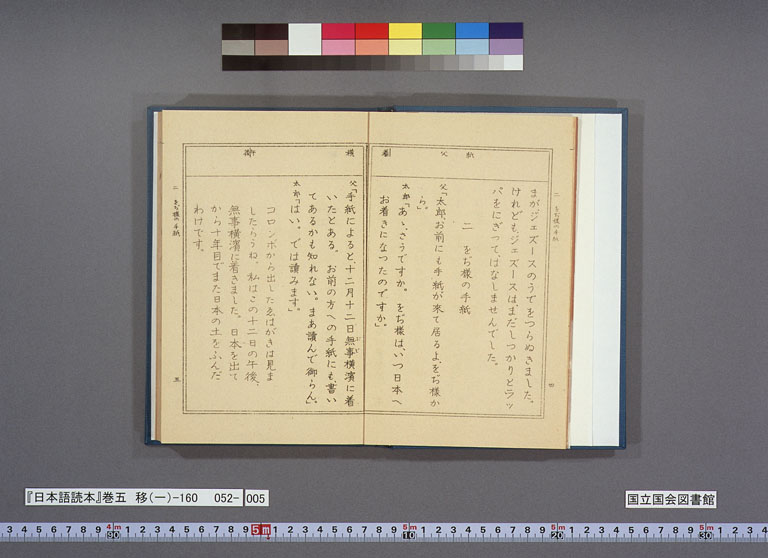 紙 父 劃
二 をぢ様の手紙
まがジェズースのうでをつらぬきました。
けれどもジェズースはまだしつかりとラッ
パをにぎつて、はなしませんでした。
二 をぢ様の手紙
父「太郎お前にも手紙が來て居るよ。をぢ様か
ら。」
太郎「あゝ、さうですか。をぢ様は、いつ日本へ
お着きになつたのですか。」
四
横 御
父「手紙によると、十二月十二日無事横濱に着
いたとある。お前の方への手紙にも、書い
てあるかも知れない。まあ讀んで御らん。」
太郎「はい。では讀みます。」
コロンボから出したゑはがきは見ま
したらうね。私はこの十二日の午後、
無事横濱に着きました。日本を出て
から十年目でまた日本の土をふんだ
わけです。
二 をぢ様の手紙
五
『日本語読本』巻五 移(一)-160 052- 005
国立国会図書館